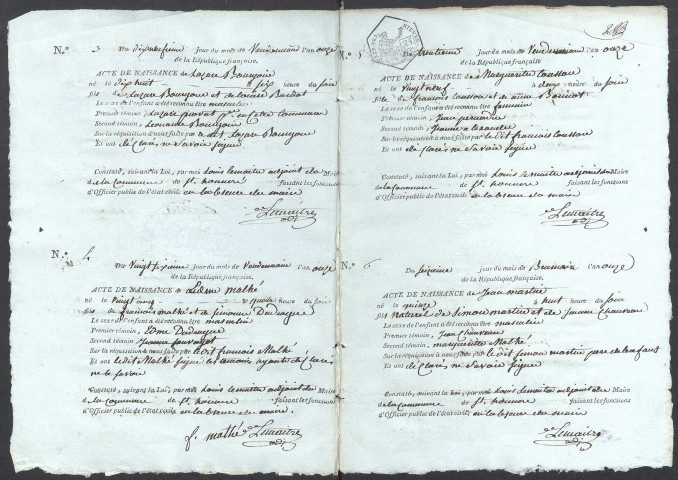 N.o 3 Du dixneufieme Jour du mois de Vendemiaire l'an onze
de la République française.
ACTE DE NAISSANCE de Lazare Bourgoin
né le dix huit à six heure du soir
fils de Lazare Bourgoin et de Louise
Le sexe de l'enfant a été reconnu être masculin
Premier témoin, Lazare
Second témoin, Leonard Bourgoin
Sur la réquisition à nous faite par le dit Lazare Bourgoin
Et ont déclaré ne savoir signer
Constaté, suivant la Loi, par moi Louis Lemaitre adjoint du Maire
de la commune de St. honnoré faisant les fonctions
d'Officier public de l'état civil en labsence du maire
Lemaitre
adj
N.o 4 Du Vingt sixieme Jour du mois de Vendemiaire l'an onze
de la République française.
ACTE DE NAISSANCE de Edme Mathé
né le Vingt cinq à quatre heure du soir
fils de francois Mathé et de Simonne
Le sexe de l'enfant a été reconnu être masculin
Premier témoin, Edme
Second témoin, Jeanne
Sur la réquisition à nous faite par le dit francois Mathé
Et ont le dit Mathé signé les temoins ayant declaré
ne le savoir
Constaté, suivant la Loi, par moi Louis Lemaitre adjoint du Maire
de la commune de St. honnoré faisant les fonctions
d'Officier public de l'état civil en labsence du maire
f. mathé Lemaitre
adj
N.o 5 Du trentieme Jour du mois de Vendemiaire l'an onze
de la République française
ACTE DE NAISSANCE de Marguerite Cousson
né le Vingt neuf à deux heure du soir
fille de francois Cousson et de
Le sexe de l'enfant a été reconnu être feminin
Premier témoin, Jean
Second témoin, Jeanne
Sur la réquisition à nous faite par le dit francois Cousson
Et ont déclaré ne savoir signer
Constaté, suivant la Loi, par moi Louis Lemaitre adjoint du Maire
de la commune de St. honnoré faisant les fonctions
d'Officier public de l'état civil en labsence du maire
Lemaitre
adj
N.o 6 Du seizieme Jour du mois de Brumaire l'an onze
de la République française.
ACTE DE NAISSANCE de Jean Martin
né le quinze à huit heure du soir
fils naturel de Simon martin et de Jeanne Chauveau
Le sexe de l'enfant a été reconnu être masculin
Premier témoin, Jean Chauveau
Second témoin, marguerite Mathé
Sur la réquisition à nous faite par le dit Simon martin pere de lenfant
Et ont déclaré ne savoir signer
Constaté, suivant la Loi, par moi Louis Lemaitre adjoint du Maire
de la commune de St. honnoré faisant les fonctions
d'Officier public de l'état civil en labsence du maire
Lemaitre
adj